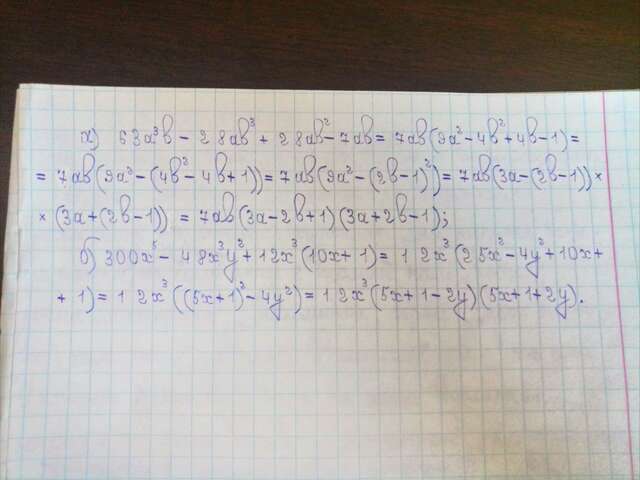 а) 63a³b - 28ab³ + 28ab² - 7ab = 7ab(9a² - 4b² + 4b - 1) =
= 7ab(9a² - (4b² - 4b + 1)) = 7ab(9a² - (2b - 1)²) = 7ab(3a - (2b - 1)) ×
× (3a + (2b - 1)) = 7ab(3a - 2b + 1)(3a + 2b - 1);
б) 300x⁵ - 48x³y² + 12x³(10x + 1) = 12x³(25x² - 4y² + 10x +
+ 1) = 12x³((5x + 1)² - 4y²) = 12x³(5x + 1 - 2y)(5x + 1 + 2y).